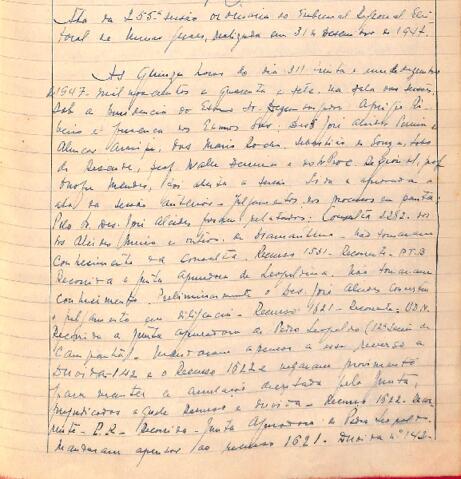 Ata da 255ª sessão ordinária do Tribunal Regional Elei-
toral de Minas Gerais, realizada em 31 de dezembro de 1947.
Às quinze horas do dia 31 trinta e um de dezembro
de 1947, mil novecentos e quarenta e sete, na sala das sessões,
sob a presidência do Exmo. Sr. Desembargador
e presença dos Exmos. Srs. José Alcides Pereira,
Alencar Araripe, da Rocha, Sebastião de Souza,
de Resende, prof.
Onofre Mendes, foi aberta a sessão. Lida e aprovada a
ata da sessão anterior. Julgamentos dos processos em pauta:
Pelo Sr. Des. José Alcides foram relatados: Consulta 3252. do
Sr. Alcides e outros. de Diamantina. não tomaram
conhecimento da consulta. Recurso 1531 - Recorrente. P.T.B
Recorrida a Junta Apuradora de Leopoldina. Não tomaram
conhecimento. Preliminarmente o Des. José Alcides converteu
o julgamento em diligência - Recurso 1621 - Recorrente: U.D.N.
Recorrida a Junta apuradora de Pedro Leopoldo (12ª seção de
Campanhã). Mandaram apensar a esse recurso a
Dúvida 142 e o Recurso 1622 e negaram provimento
para manter a anulação decretada pela Junta,
prejudicados aquele recurso e dúvida - Recurso 1622. Recor-
rente - P.R - Recorrida - Junta Apuradora de Pedro Leopoldo.
Mandaram apensar ao recurso 1621. Dúvida nº 142 -